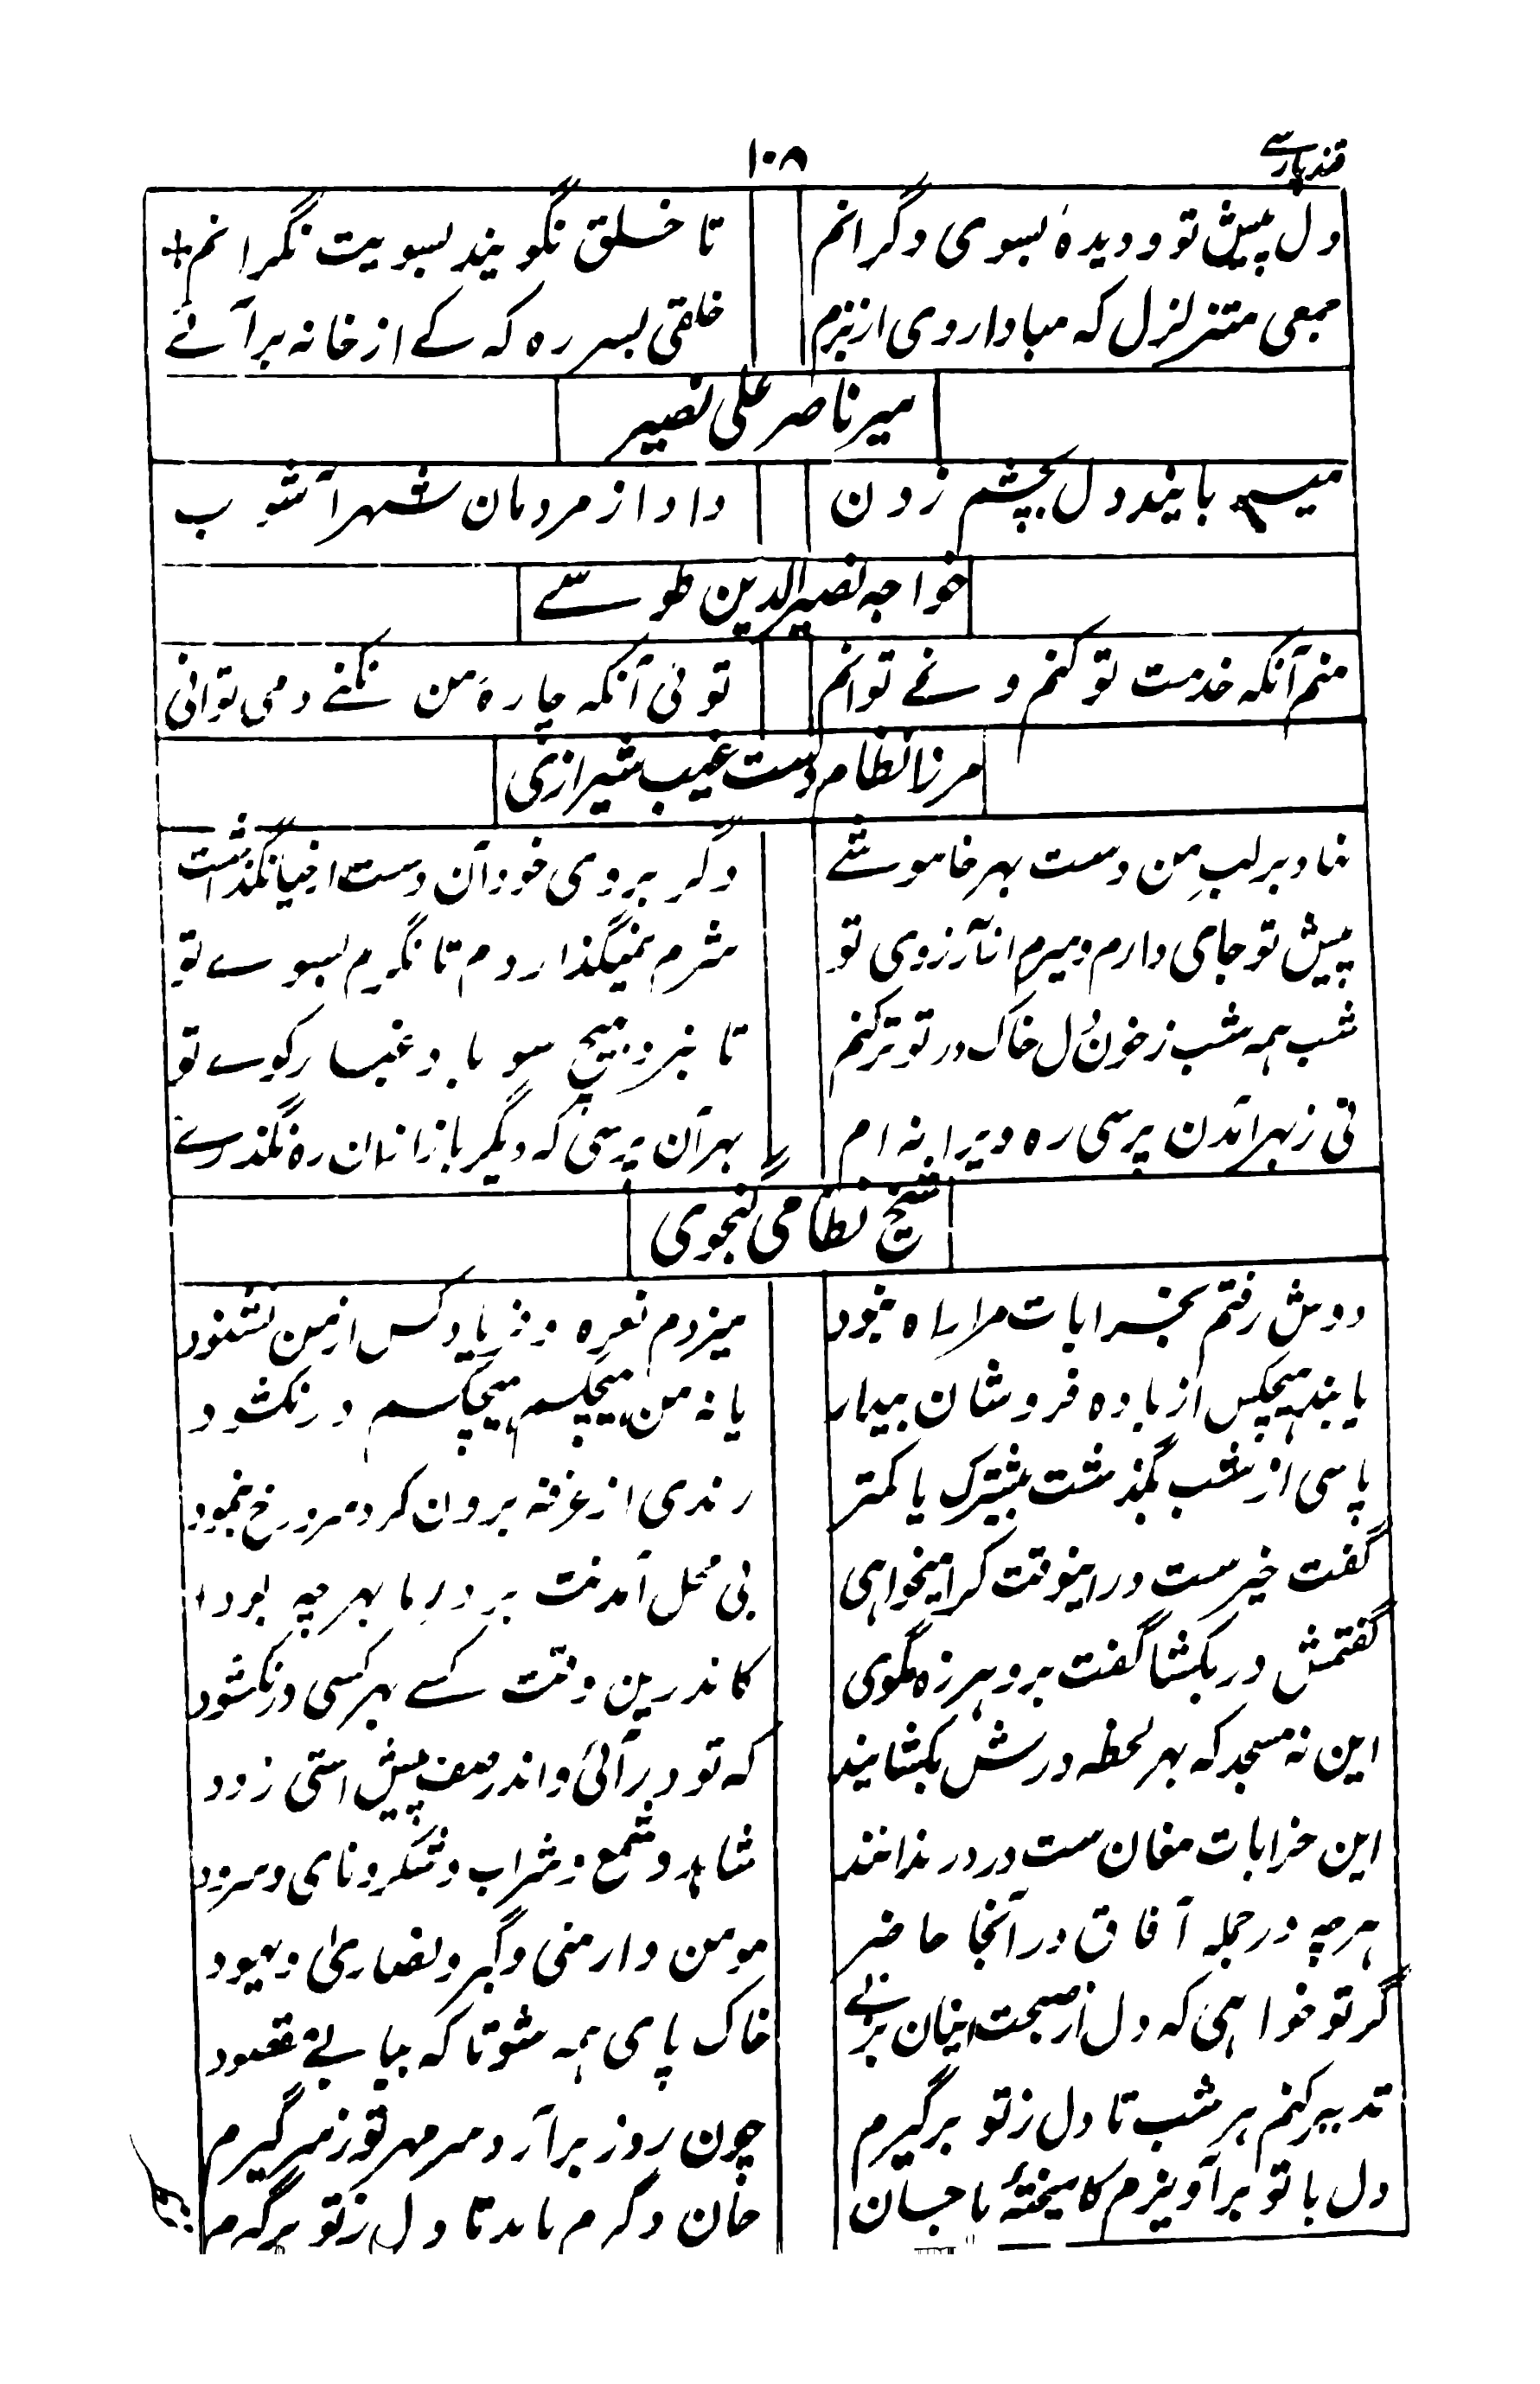 قند پارسے
۱۰۸
دل پیش تو و دیدہ بسوی دگرانم
تا خلق نگویند بسویت نگرانم
جمعی متزلزل کہ مبادا روی از بزم
خلقی بسر رہ کہ کے از خانہ برآئے
میر ناصر علی نصیر
میربایند دل بچشم زدن
داد از مردمان شہر آشوب
خواجہ نصیر الدین طوسے
منم آنکہ خدمت تو کنم و نے توانم
توئی آنکہ چارۂ من نکنے و می توانی
مرزا نظام دست غیب شیرازی
نهاد بر لبِ من دست بهر خاموشے
وگر بروی خود آن دست از حیا نگذاشت
پیش تو جای دارم و میرم از آرزوی تو
شرم نمیگذاردم تا نگرم بسوے تو
شب ہمہ شب ز خون دل خاک در تو تر کنم
تا نبرد بہیچ سو باد غبار کوے تو
نی ز بہر آمدن پرسی رہ ویرانہ ام
بہر آن پرسی کہ دیگر باز ازان رہ نگذرے
شیخ نظامی گنجوی
دوش رفتم بخرابات مرا راہ نبود
میزدم نعرہ و فریاد کس از من نشنود
یا نبد ہیچکس از بادہ فروشان بیدار
یا نہ من ہیچکسم ہیچکسم در نگشود
پاسی از شب بگذشت بیشترک یا کمتر
رندی از غرفہ برون کرد سر و رخ بنمود
گفت خیرست درینوقت کرا میخواہی
بی محل آمدنت بر در ما بہر چہ بود
گفتمش در بگشا گفت برو ہرزہ مگوی
کاندرین وقت کسے بہر کسی در نگشود
این نہ مسجد کہ بہر لحظہ درش بگشایند
کہ تو در آئی و اندر صف پیش استی زود
این خرابات مغان ست درو رندانند
شاہد و شمع و شراب و شکر و نای و سرود
ہرچہ در جملہ آفاق در آنجا حاضر
مومن و ارمنی و گبر و نصاری و یہود
گر تو خواہی کہ دل از صحبت اینان بزنی
خاک پای ہمہ شو تا کہ بیابی مقصود
تدبیر کنم ہر شب تا دل ز تو برگیرم
چون روز برآرد سر مہر تو ز سر گیرم
دل با تو برآویزم کامیختۂ با جان
جان دگرم باید تا دل ز تو برگیرم